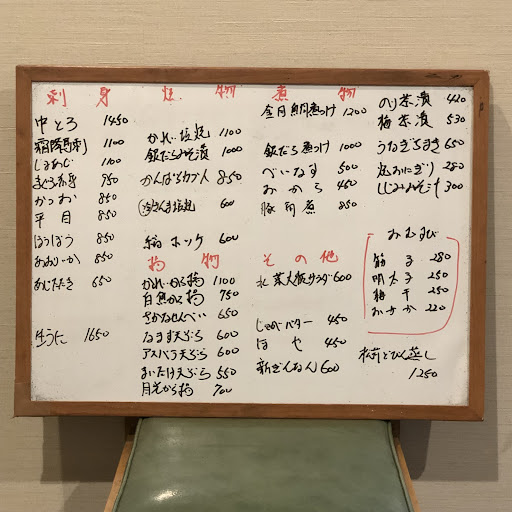 刺身
中とろ 1450
霜降馬刺 1100
しまあじ 1100
まぐろ赤身 950
かつお 850
平目 850
ほうぼう 850
あおりいか 850
あじたたき 650
生うに 1650
焼物
かれい塩焼 1100
銀だらみそ漬 1000
かんぱちカブト 850
さんま塩焼 600
縞ホッケ 600
揚物
かれいから揚 1100
白魚から揚 750
さかなせんべい 650
なます天ぷら 600
アスパラ天ぷら 600
しいたけ天ぷら 550
月光から揚 700
煮物
金目鯛煮つけ 1200
銀だら煮つけ 1000
べいなす 500
おから 450
豚角煮 850
その他
水菜大根サラダ 600
じゃがバター 450
ほや 450
新ぎんなん 600
のり茶漬 420
梅茶漬 530
うなぎちまき 650
焼おにぎり 280
しじみみそ汁 300
おむすび
筋子 280
明太子 250
梅干 250
おかか 220
松茸どびん蒸し
1250